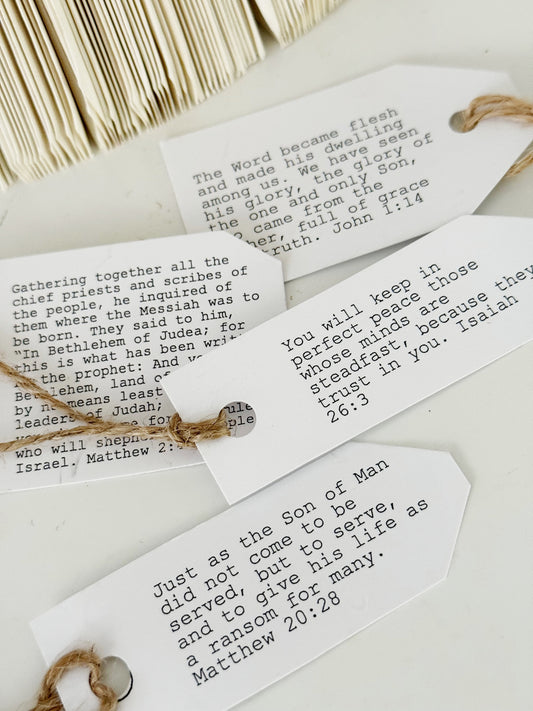 The Word became flesh
and made his dwelling
among us. We have seen
his glory, the glory of
the one and only Son,
came from the
her, full of grace
ruth. John 1:14
Gathering together all the
chief priests and scribes of
the people, he inquired of
them where the Messiah was to
be born. They said to him,
"In Bethlehem of Judea; for
this is what has been writ
the prophet: And yo
Be lehem, land of
by no means least
leaders of Judah;
ule
for
who will sheph
Israel. Matthew 2:
You will keep in
perfect peace those
whose minds are
steadfast, because they
trust in you. Isaiah
26:3
Just as the Son of Man
did not come to be
served, but to serve,
and to give his life as
a ransom for many.
Matthew 20:28